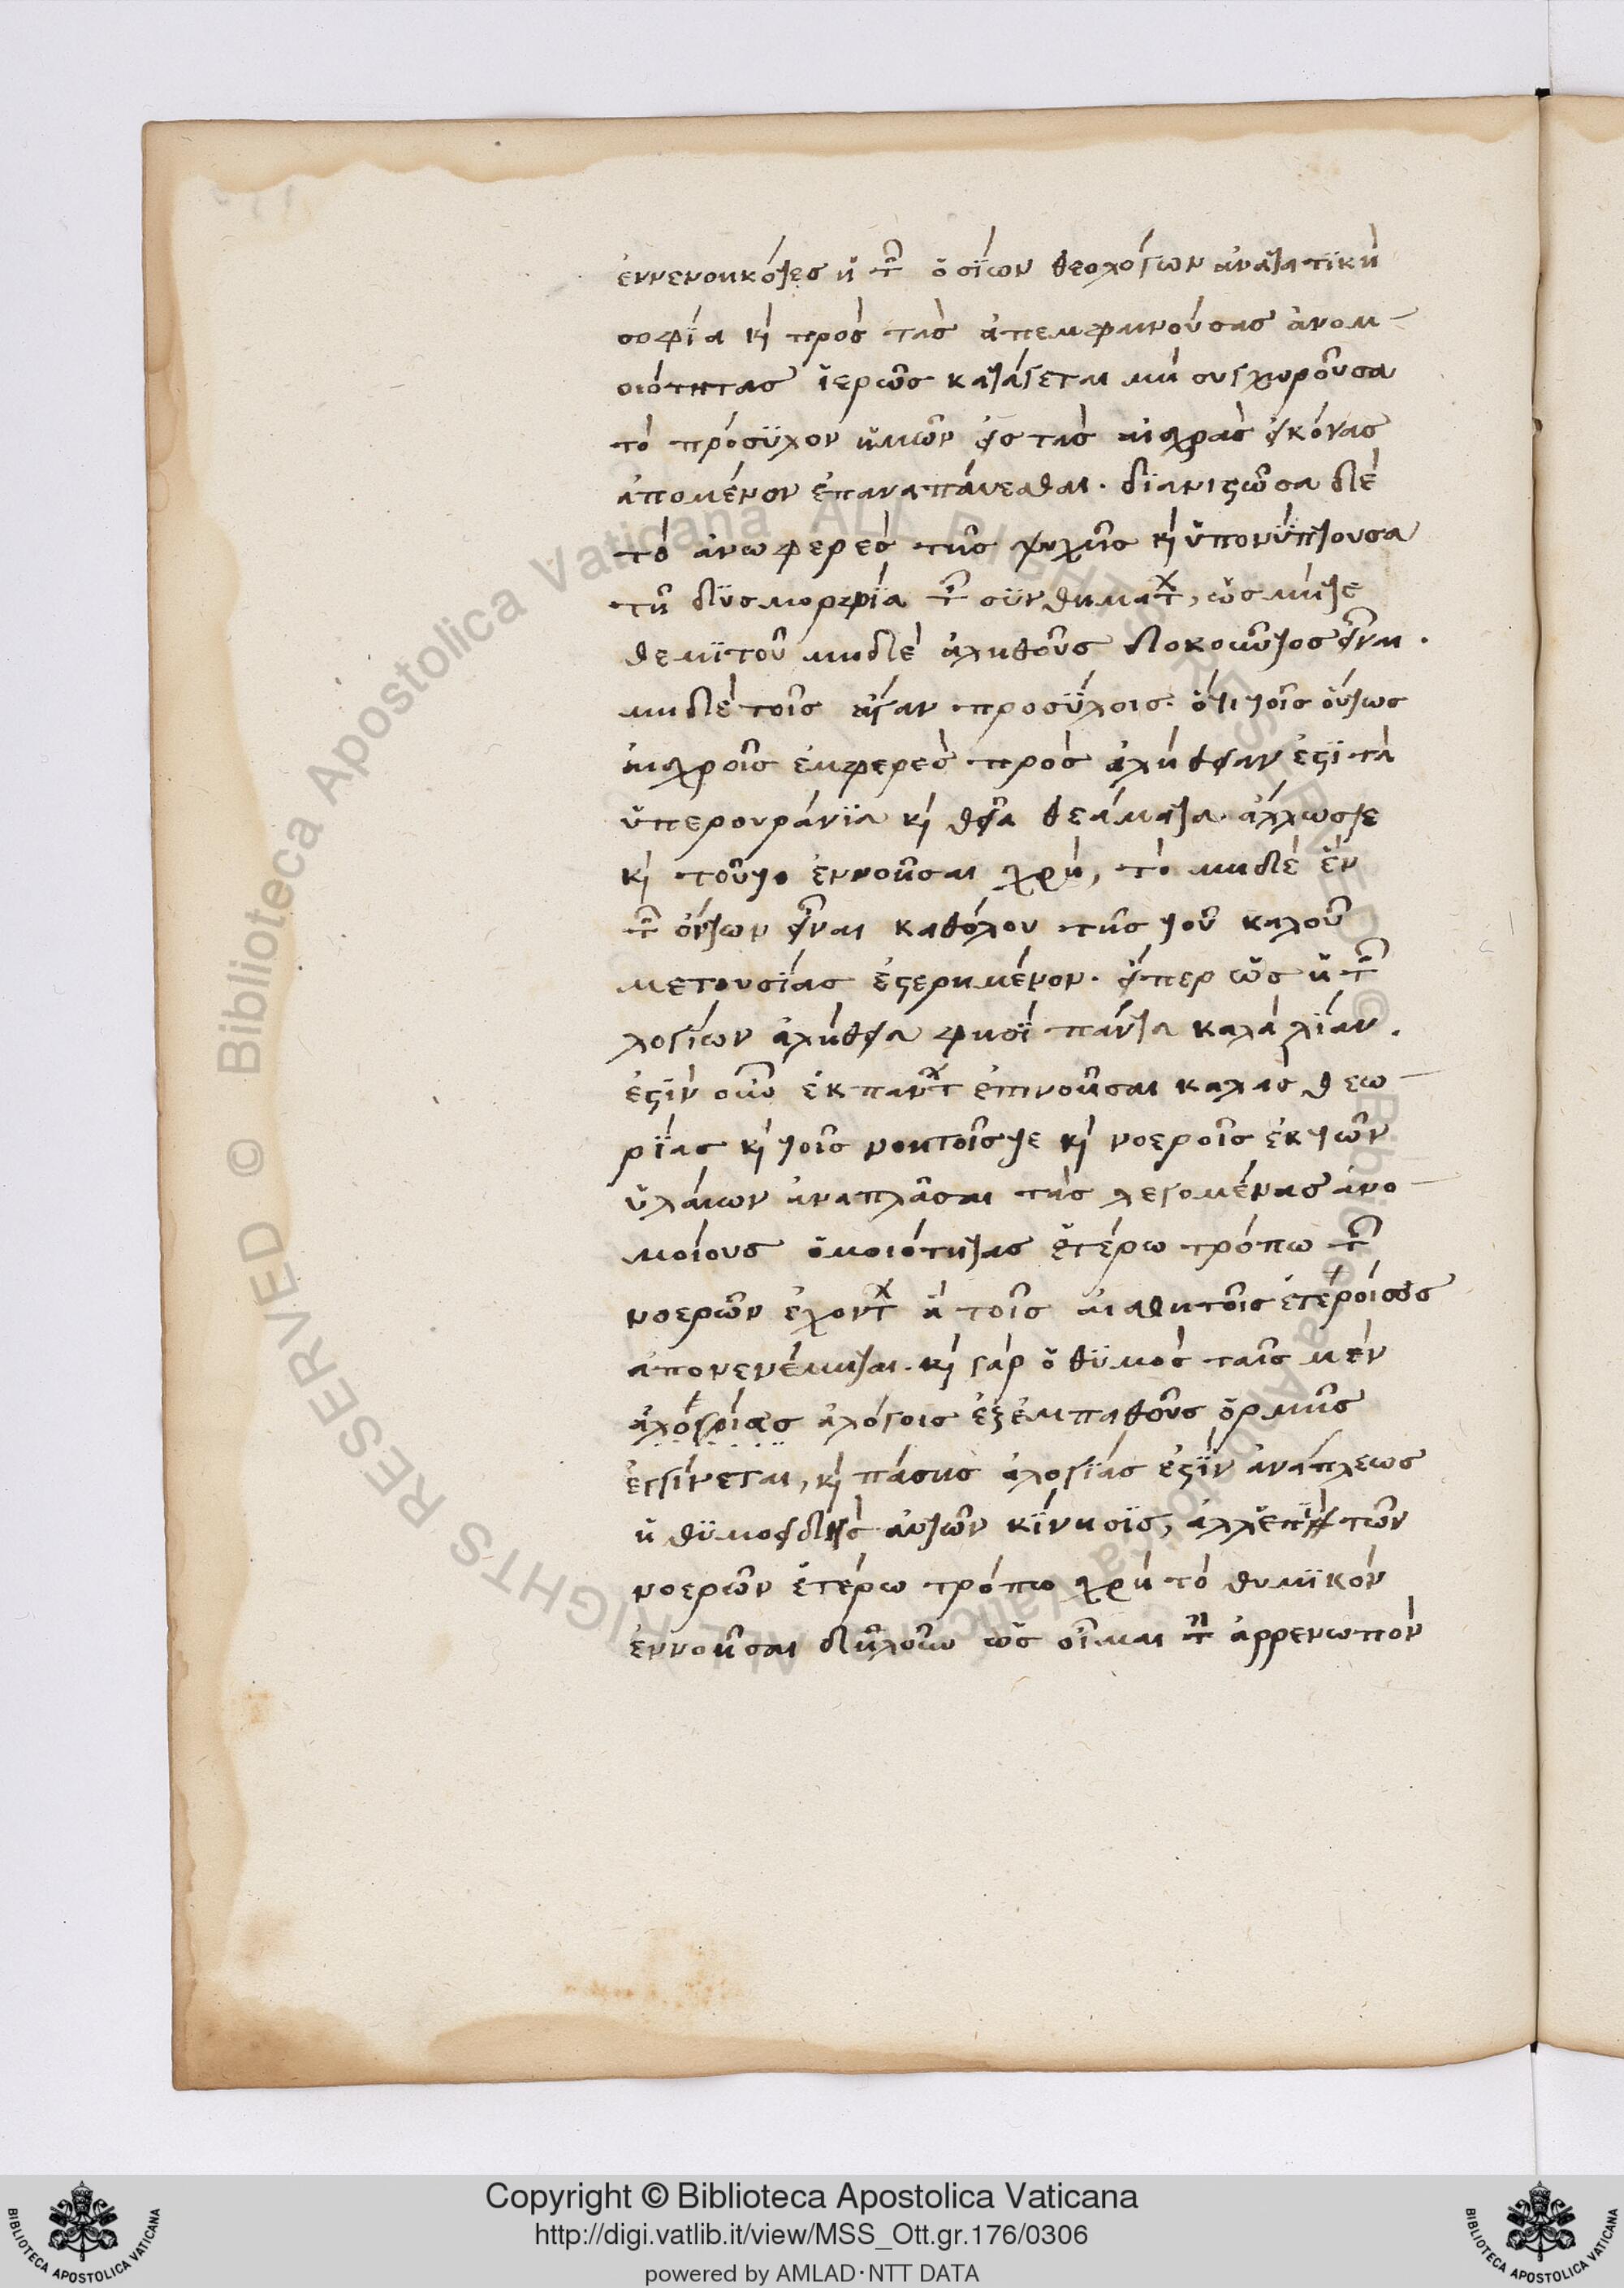 ἐννενοηκότες ἡ τῶν ὁσίων θεολόγων ἀναγωτικὴ
σοφία καὶ πρὸς τὰς ἀπεμφαινούσας ἀνομ–
οιότητας ἱερῶς κατάγεται μὴ συγχωροῦσα
τὸ πρόσϋλον ἡμῶν εἰς τὰς αἰσχρὰς εἰκόνας
ἀπομένον ἐπαναπαύεσθαι. διανιστῶσα δὲ
τὸ ἀνωφερὲς τῆς ψυχῆς καὶ ὑπονύττουσα
τῇ δυσμορφία τῶν συνθημάτων, ὡς μήτε
θεμιτοῦ μηδὲ ἀληθοῦς δοκοῦντος εἶναι.
μηδὲ τοῖς ἄγαν προσύλοις. ὅτι τοῖς οὕτως
αἰσχροῖς ἐμφερὲς πρὸς ἀλήθειαν ἐστὶ τὰ
ὑπερουράνια καὶ θεῖα θεάματα. ἄλλωστε
καὶ τοῦτο ἐννοῆσαι χρὴ, τὸ μηδὲ ἓν
τῶν ὄντων εἶναι καθόλου τῆς τοῦ καλοῦ
μετουσίας ἐστερημένον. εἴπερ ὡς ἡ τῶν
λογίων ἀλήθεια φησὶ πάντα καλὰ λίαν.
ἐστὶν οὖν ἐκ πάντων ἐπινοῆσαι καλὰς θεω–
ρίας καὶ τοῖς νοητοῖς τε καὶ νοεροῖς ἐκ τῶν
ὑλαίων ἀναπλᾶσαι τὰς λεγομένας ἀνο–
μοίους ὁμοιότητας ἑτέρω τρόπω τῶν
νοερῶν ἐχόντων ἃ τοῖς αἰσθητοῖς ἑτεροίως
ἀπονενέμηται. καὶ γὰρ ὁ θυμὸς ταῖς μὲν
ἀλογίας ἀλόγοις ἐξ ἐμπαθοῦς ὁρμῆς
ἐγγίνεται, καὶ πάσης ἀλογίας ἐστὶν ἀνάπλεως
ἡ θυμοειδὴς αὐτῶν κίνησις, ἀλλ' ἐπὶ τῶν
νοερῶν ἑτέρω τρόπω χρὴ τὸ θυμικὸν
ἐννοῆσαι δηλοῦν ὡς οἶμαι τὴν ἀρρενωπὸν
Copyright © Biblioteca Apostolica Vaticana
http://digi.vatlib.it/view/MSS_Ott.gr.176/0306
powered by AMLAD·NTT DATA